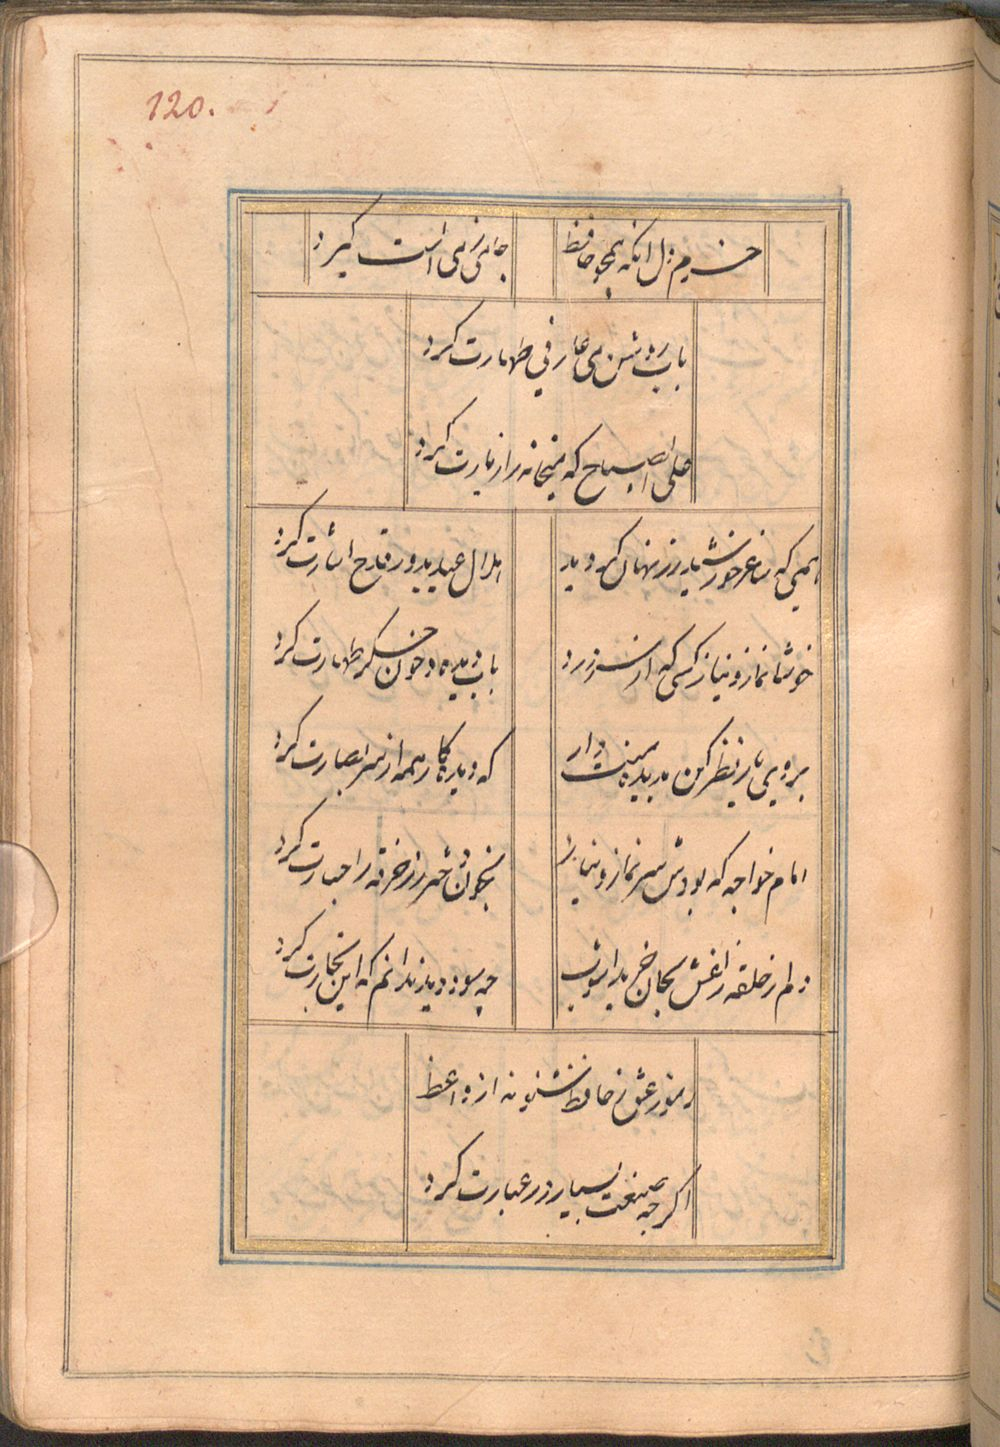 120.
خرم دل آنکه همچو حافظ
جامی ز می الست گیرد
بآب روشن می عارفی طهارت کرد
علی الصباح که میخانه را زیارت کرد
همی که ساغر خورشید زر نهان گردید
هلال عید بدور قدح اشارت کرد
خوشا نماز و نیاز کسی که از سر درد
بآب دیده و خون جگر طهارت کرد
بروی یار نظر کن بدیده منت دار
که دیده کار همه از سر بصارت کرد
امام خواجه که بودش سر نماز و نیاز
بخون دختر رز خرقه را جبارت کرد
دلم ز حلقه زلفش بجان خرید آشوب
چه سود دید ندانم که این تجارت کرد
رموز عشق ز حافظ شنو نه از واعظ
اگرچه صنعت بسیار در عبارت کرد